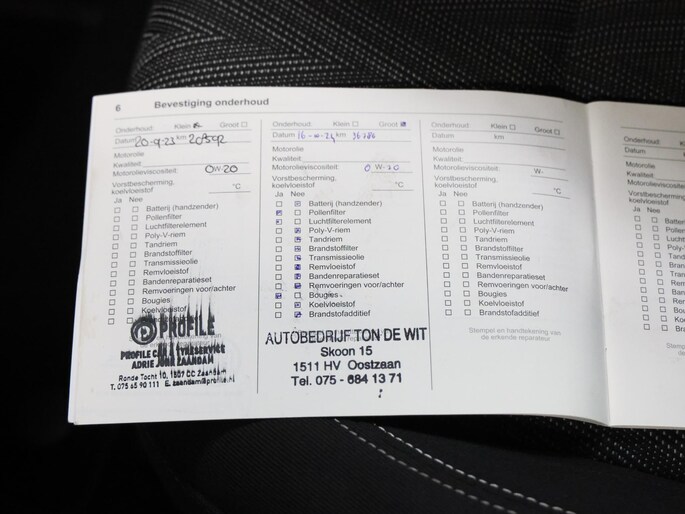 6 Bevestiging onderhoud
Onderhoud: Klein Groot
Datum 20-9-23 km
Motorolie
Kwaliteit
Motorolieviscositeit: 0W-20
Vorstbescherming,
koelvloeistof °C
Ja Nee
Batterij (handzender)
Pollenfilter
Luchtfilterelement
Poly-V-riem
Tandriem
Brandstoffilter
Transmissieolie
Remvloeistof
Bandenreparatieset
Remvoeringen voor/achter
Bougies
Koelvloeistof
PROFILE
PROFILE CAR & TYRESERVICE
ADRIE JONK ZAANDAM
Ronde Tocht 10, 1507 CC Zaandam
T. 075 65 90 111 E. zaandam@profile.nl
Onderhoud: Klein Groot
Datum km
Motorolie
Kwaliteit:
Motorolieviscositeit: 0 W-20
Vorstbescherming,
koelvloeistof °C
Ja Nee
Batterij (handzender)
Pollenfilter
Luchtfilterelement
Poly-V-riem
Tandriem
Brandstoffilter
Transmissieolie
Remvloeistof
Bandenreparatieset
Remvoeringen voor/achter
Bougies
Koelvloeistof
Brandstofadditief
AUTOBEDRIJF TON DE WIT
Skoon 15
1511 HV Oostzaan
Tel. 075 - 684 13 71
Onderhoud: Klein Groot
Datum km
Motorolie
Kwaliteit:
Motorolieviscositeit: W-
Vorstbescherming,
koelvloeistof °C
Ja Nee
Batterij (handzender)
Pollenfilter
Luchtfilterelement
Poly-V-riem
Tandriem
Brandstoffilter
Transmissieolie
Remvloeistof
Bandenreparatieset
Remvoeringen voor/achter
Bougies
Koelvloeistof
Brandstofadditief
Stempel en handtekening van
de erkende reparateur
Onderhoud:
Datum
Motorolie
Kwaliteit:
Ja Nee